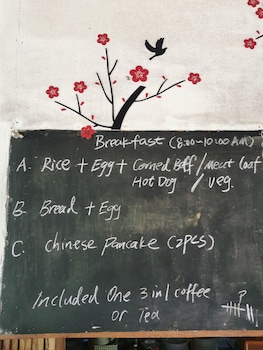 Breakfast (8:00~10:00 AM)
A. Rice + Egg + Corned Beff / Meat loaf
Hot Dog / veg.
B. Bread + Egg
C. Chinese Pancake (2PCS)
Included One 3 in 1 coffee
or Tea
P